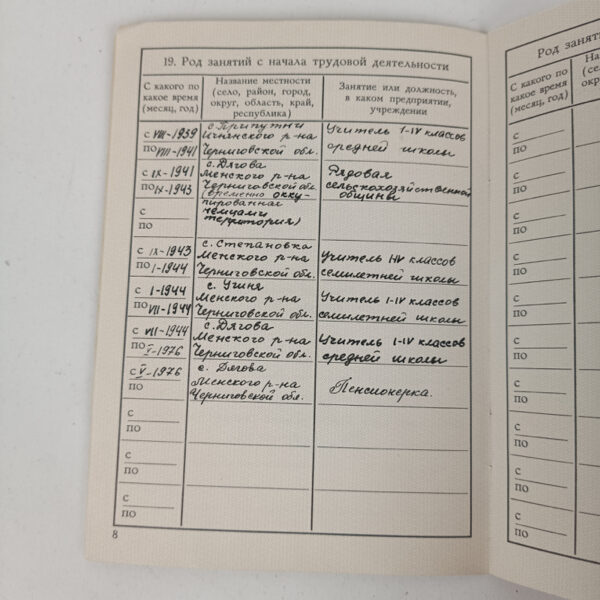 19. Род занятий с начала трудовой деятельности
С какого по какое время (месяц, год)
Название местности (село, район, город, округ, область, край, республика)
Занятие или должность, в каком предприятии, учреждении
с VIII-1939
по VIII-1941
с. Припутни
Ичнянского р-на
Черниговской обл.
Учитель I-IV классов
средней школы
с IX-1941
по IX-1943
с. Дягова
Менского р-на
Черниговской обл.
(временно окку-
пированная
немцами
территория)
Рядовая
сельскохозяйственной
общины
с
по
с IX-1943
по I-1944
с. Степановка
Менского р-на
Черниговской обл.
Учитель I-IV классов
семилетней школы
с I-1944
по VII-1944
с. Угиня
Менского р-на
Черниговской обл.
Учитель I-IV классов
семилетней школы
с VII-1944
по V-1976
с. Дягова
Менского р-на
Черниговской обл.
Учитель I-IV классов
средней школы
с V-1976
по
с. Дягова
Менского р-на
Черниговской обл.
Пенсионерка.
с
по
с
по
с
по
8
Род занят
С какого по
какое время
(месяц, год)
с
по
с
по
с
по
с
по
с
по
с
по
с
по
с
по
с
по
с
по